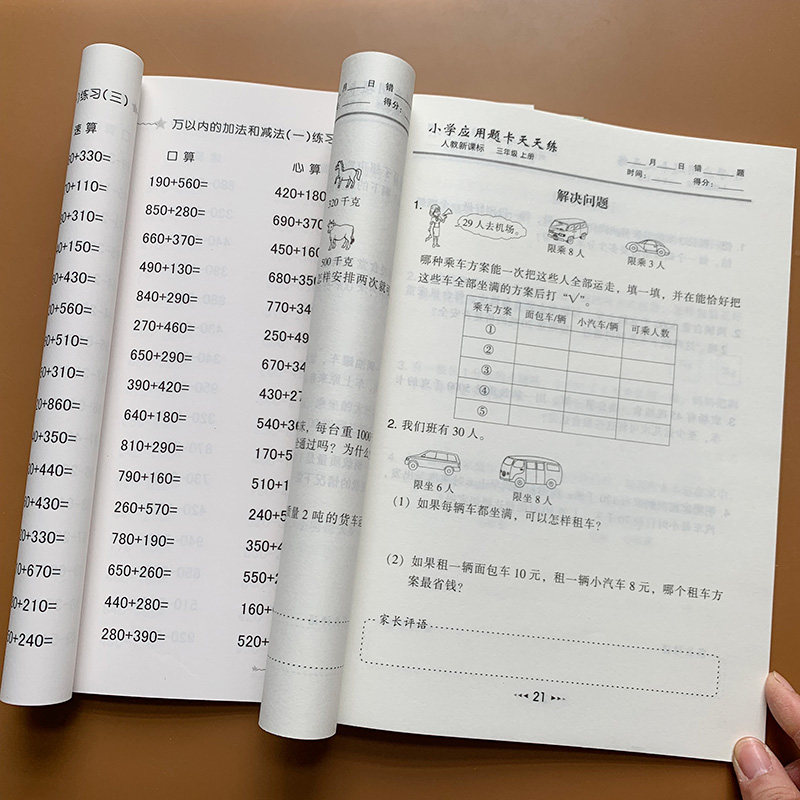 练习(三)
速算
0+330=
70+110=
0+310=
40+150=
60+430=
20+560=
0+510=
0+310=
20+860=
40+350=
80+440=
60+430=
20+330=
0+670=
50+210=
50+240=
万以内的加法和减法(一)练习
口算
190+560=
850+280=
660+370=
490+130=
840+290=
270+460=
650+290=
390+420=
640+180=
810+290=
790+160=
260+570=
780+190=
650+260=
440+280=
280+390=
心算
420+180
690+370
450+160
680+350
770+34
250+49
670+34
430+27
540+36
170+5
510+1
240+5
350+4
550+2
160+
520+
月 日 错
得分:
320千克
500千克
怎样安排两次就
每台重100
通过吗?为什么
质量2吨的货车
小学应用题卡天天练
人教新课标 三年级上册
月 日 错 题
时间: 得分:
解决问题
1.
29人去机场。
限乘8人
限乘3人
哪种乘车方案能一次把这些人全部运走,填一填,并在能恰好把
这些车全部坐满的方案后打“√”。
乘车方案 面包车/辆 小汽车/辆 可乘人数
①
②
③
④
⑤
2. 我们班有30人。
限坐6人
限坐8人
(1)如果每辆车都坐满,可以怎样租车?
(2)如果租一辆面包车10元,租一辆小汽车8元,哪个租车方
案最省钱?
家长评语
21